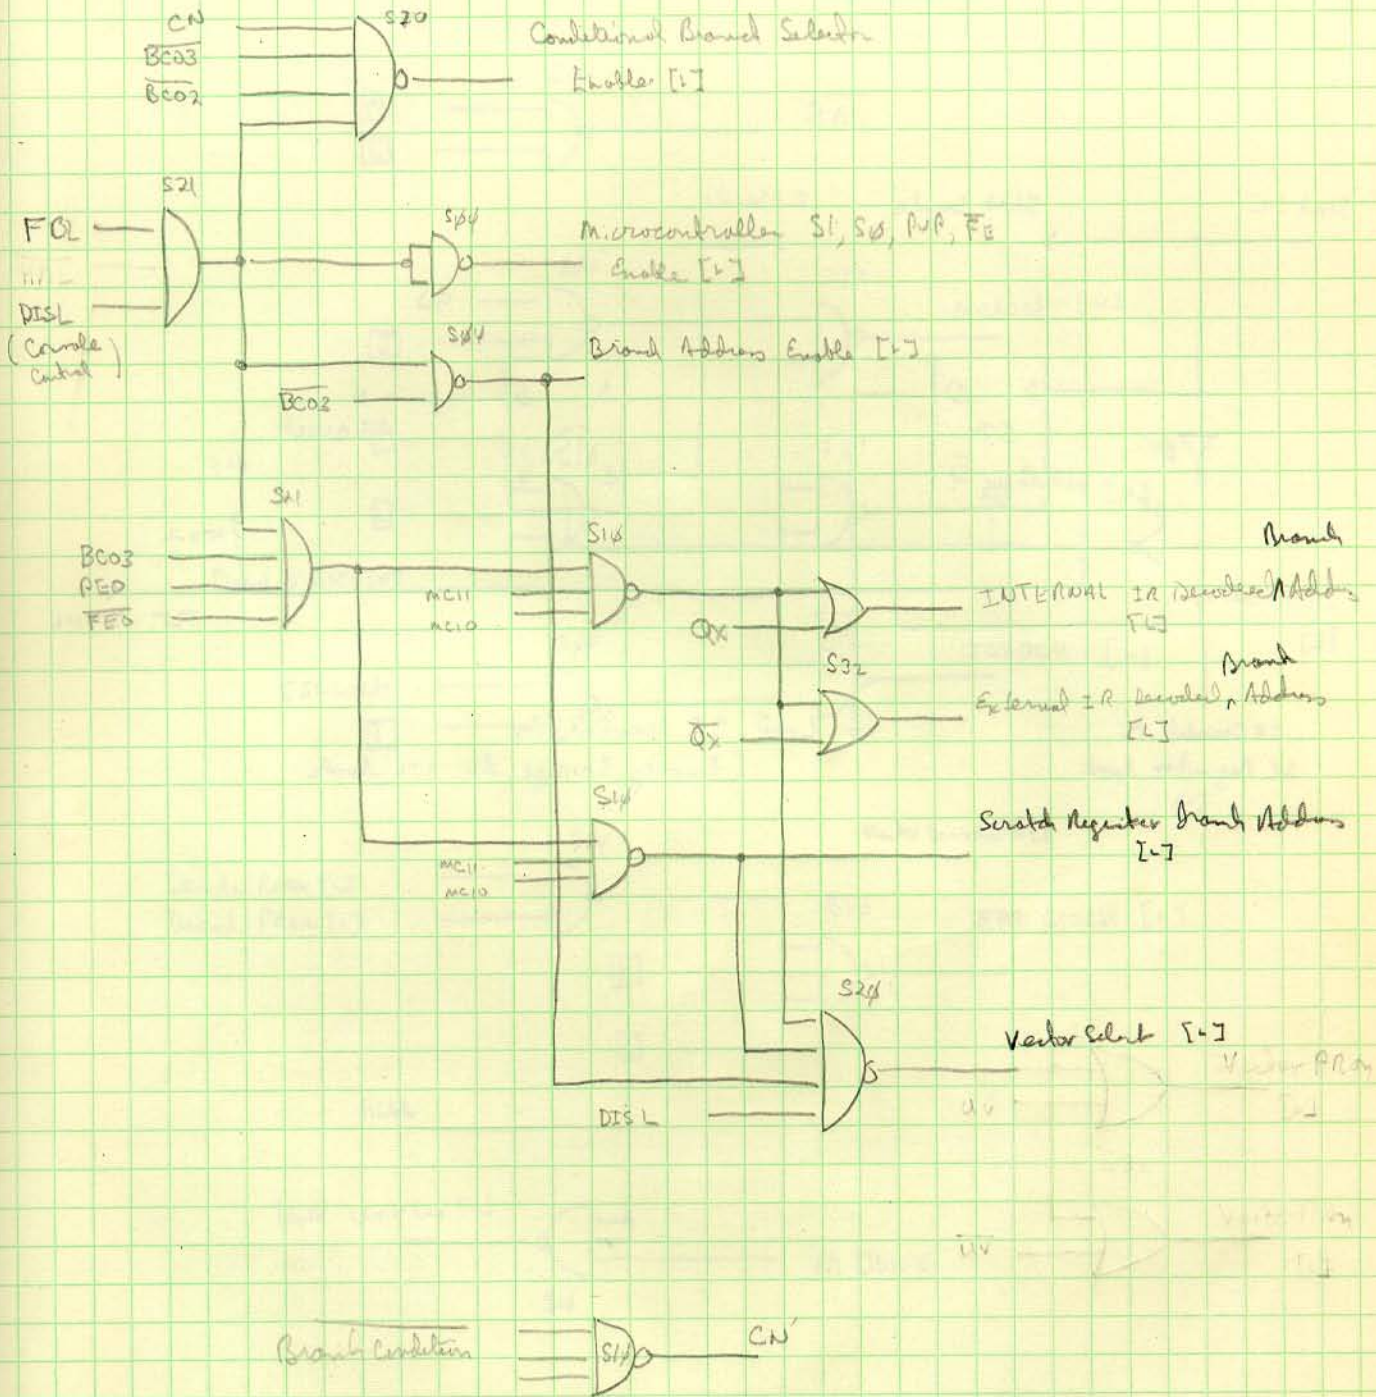 CN
S20
Conditional Branch Selector
B̅C̅0̅3̅
B̅C̅0̅2̅
Enable [L]
S21
FQL
DISL
(Console
Control)
S0̸4̸
Microcontroller S1, S0̸, PUP, F̅E̅
Enable [L]
S0̸4̸
Branch Address Enable [L]
B̅C̅0̅3̅
S21
BC03
F̅E̅0̅
S10̸
MC11
MC10
QX
Branch
INTERNAL IR Decoded ∧ Address
[L]
S32
Q̅X̅
Branch
External IR Decoded ∧ Address
[L]
S10̸
MC11
MC10
Scratch Register Branch Address
[L]
S20̸
DISL
Vector Select [L]
Vector PROM
[L]
UV
U̅V̅
[L]
Branch Condition
S10̸
CN